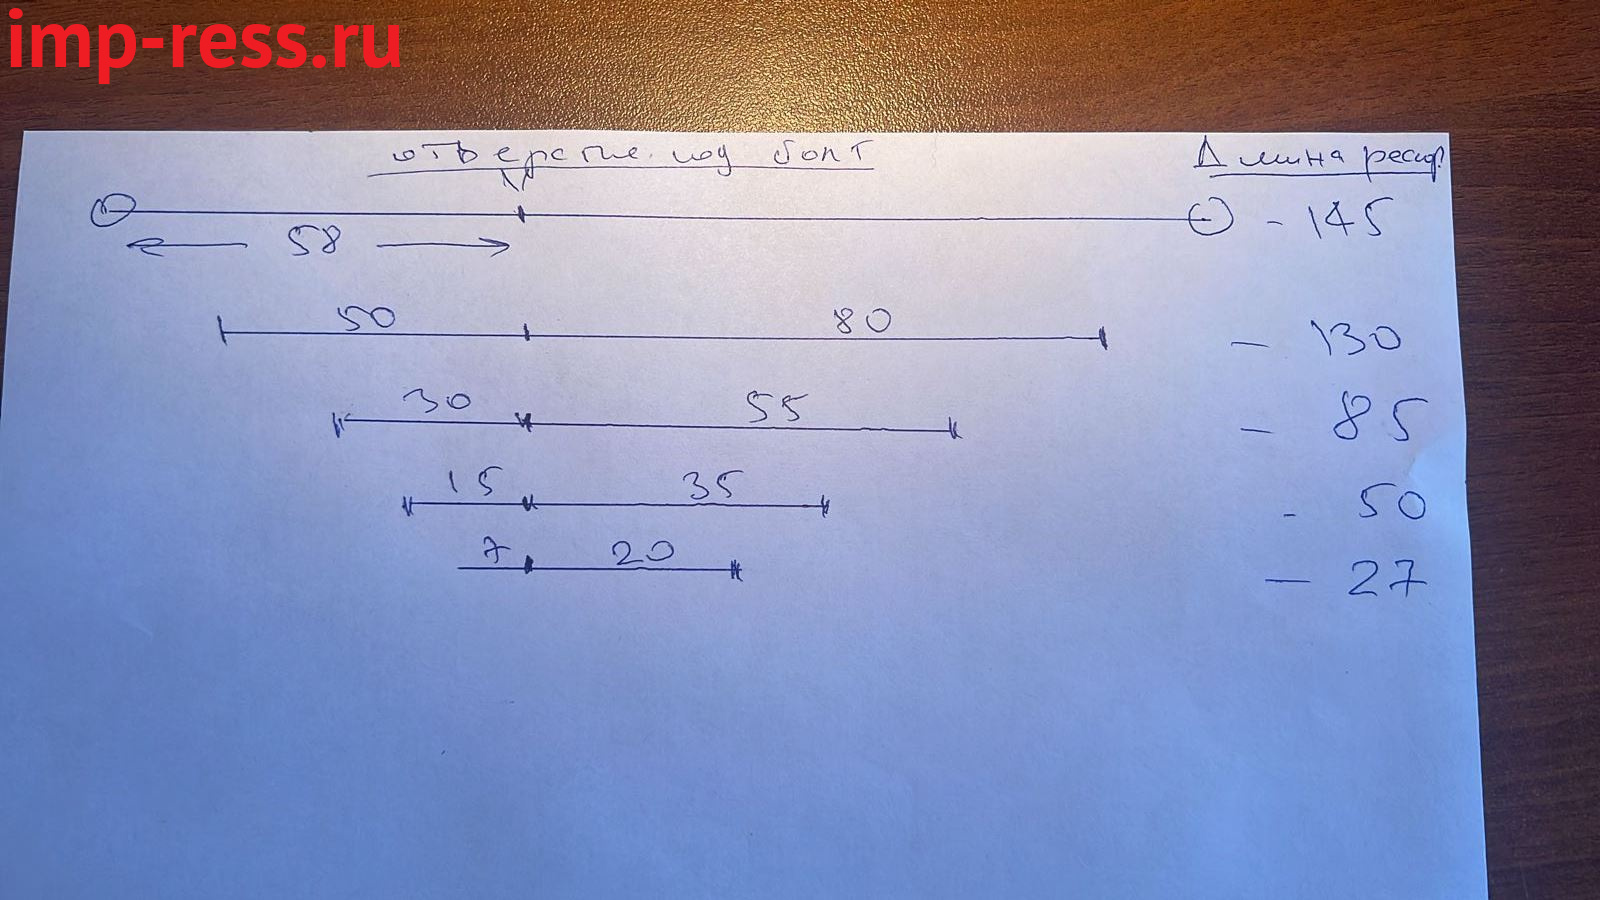 imp-ress.ru
отверстие под болт
Длина рессор
58 - 145
50 80 - 130
30 55 - 85
15 35 - 50
7 20 - 27